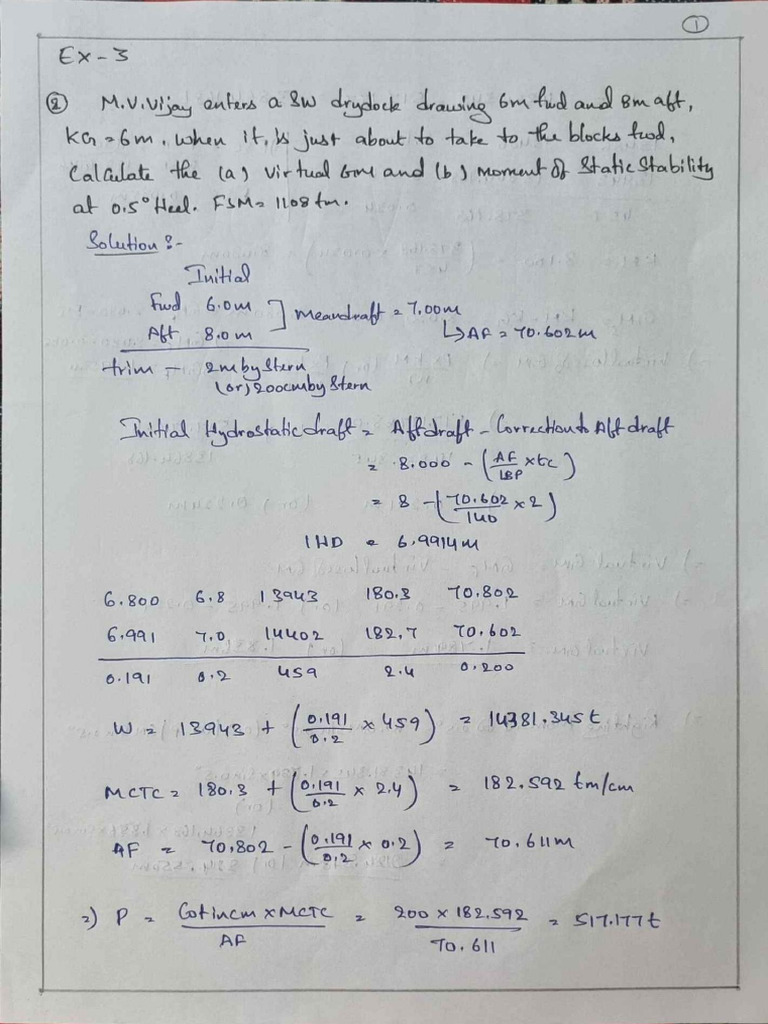 ①
Ex-3
② M.V.Vijay enters a SW drydock drawing 6m fwd and 8m aft,
KG = 6m. when it, is just about to take to the blocks fwd,
Calculate the (a) Virtual GM and (b) Moment of Static Stability
at 0.5° Heel. FSM = 1108 tm.
Solution :-
Initial
Fwd 6.0m ] Meandraft = 7.00m
Aft 8.0m ↳ AF = 70.602m
trim - 2m by Stern
(or) 200cm by Stern
Initial Hydrostatic draft = Aft draft - Correction to Aft draft
= 8.000 - (AF/LBP × tc)
= 8 - (70.602/140 × 2)
IHD = 6.9914m
6.800 6.8 13943 180.3 70.802
6.991 7.0 14402 182.7 70.602
0.191 0.2 459 2.4 0.200
W = 13943 + (0.191/0.2 × 459) = 14381.345t
MCTC = 180.3 + (0.191/0.2 × 2.4) = 182.592 tm/cm
AF = 70.802 - (0.191/0.2 × 0.2) = 70.611m
=) P = Cotincm × MCTC/AF = 200 × 182.592/70.611 = 517.177t